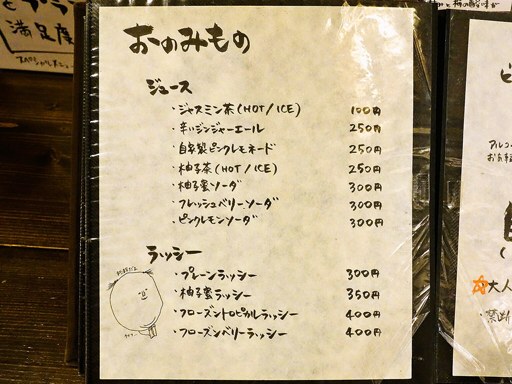 満足度
おのみもの
ジュース
・ジャスミン茶(HOT/ICE) 100円
・辛いジンジャーエール 250円
・自家製ピンクレモネード 250円
・柚子茶(HOT/ICE) 250円
・柚子蜜ソーダ 300円
・フレッシュベリーソーダ 300円
・ピンクレモンソーダ 300円
ラッシー
・プレーンラッシー 300円
・柚子蜜ラッシー 350円
・フローズントロピカルラッシー 400円
・フローズンベリーラッシー 400円
アルコ
大人